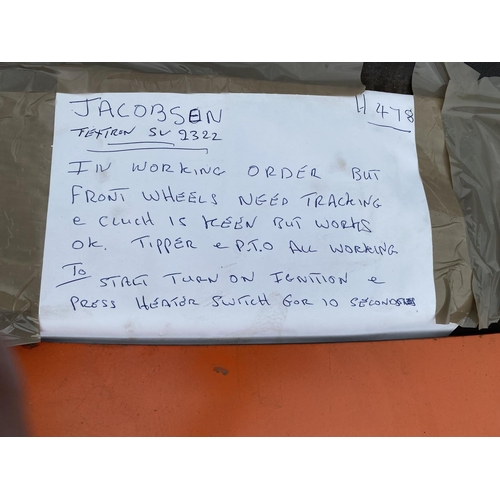 JACOBSEN
H 478
TEXTRON SV 2322
IN WORKING ORDER BUT
FRONT WHEELS NEED TRACKING
e CLUCH IS KEEN BUT WORKS
OK. TIPPER e P.T.O ALL WORKING
TO START TURN ON IGNITION e
PRESS HEATOR SWITCH FOR 10 SECONDS